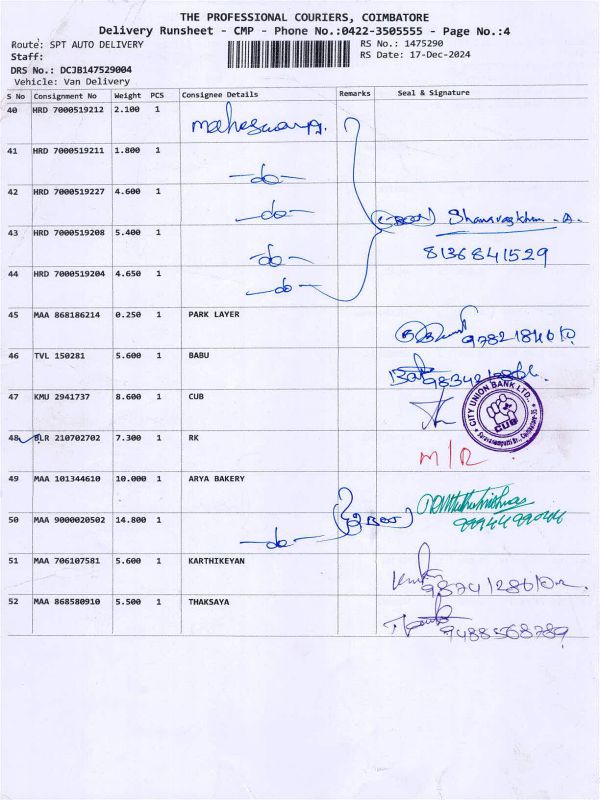 THE PROFESSIONAL COURIERS, COIMBATORE
Delivery Runsheet - CMP - Phone No.:0422-3505555 - Page No.:4
Route: SPT AUTO DELIVERY
RS No.: 1475290
Staff:
RS Date: 17-Dec-2024
DRS No.: DCJB147529004
Vehicle: Van Delivery
S No Consignment No Weight PCS Consignee Details Remarks Seal & Signature
40 HRD 7000519212 2.100 1
41 HRD 7000519211 1.800 1 -do-
42 HRD 7000519227 4.600 1 -do-
43 HRD 7000519208 5.400 1 -do-
8136841529
44 HRD 7000519204 4.650 1 -do-
45 MAA 868186214 0.250 1 PARK LAYER
46 TVL 150281 5.600 1 BABU
47 KMU 2941737 8.600 1 CUB
CITY UNION BANK LTD.,
CUB
48 BLR 210702702 7.300 1 RK M/R
49 MAA 101344610 10.000 1 ARYA BAKERY
50 MAA 9000020502 14.800 1 -do-
51 MAA 706107581 5.600 1 KARTHIKEYAN
52 MAA 868580910 5.500 1 THAKSAYA
9488568789